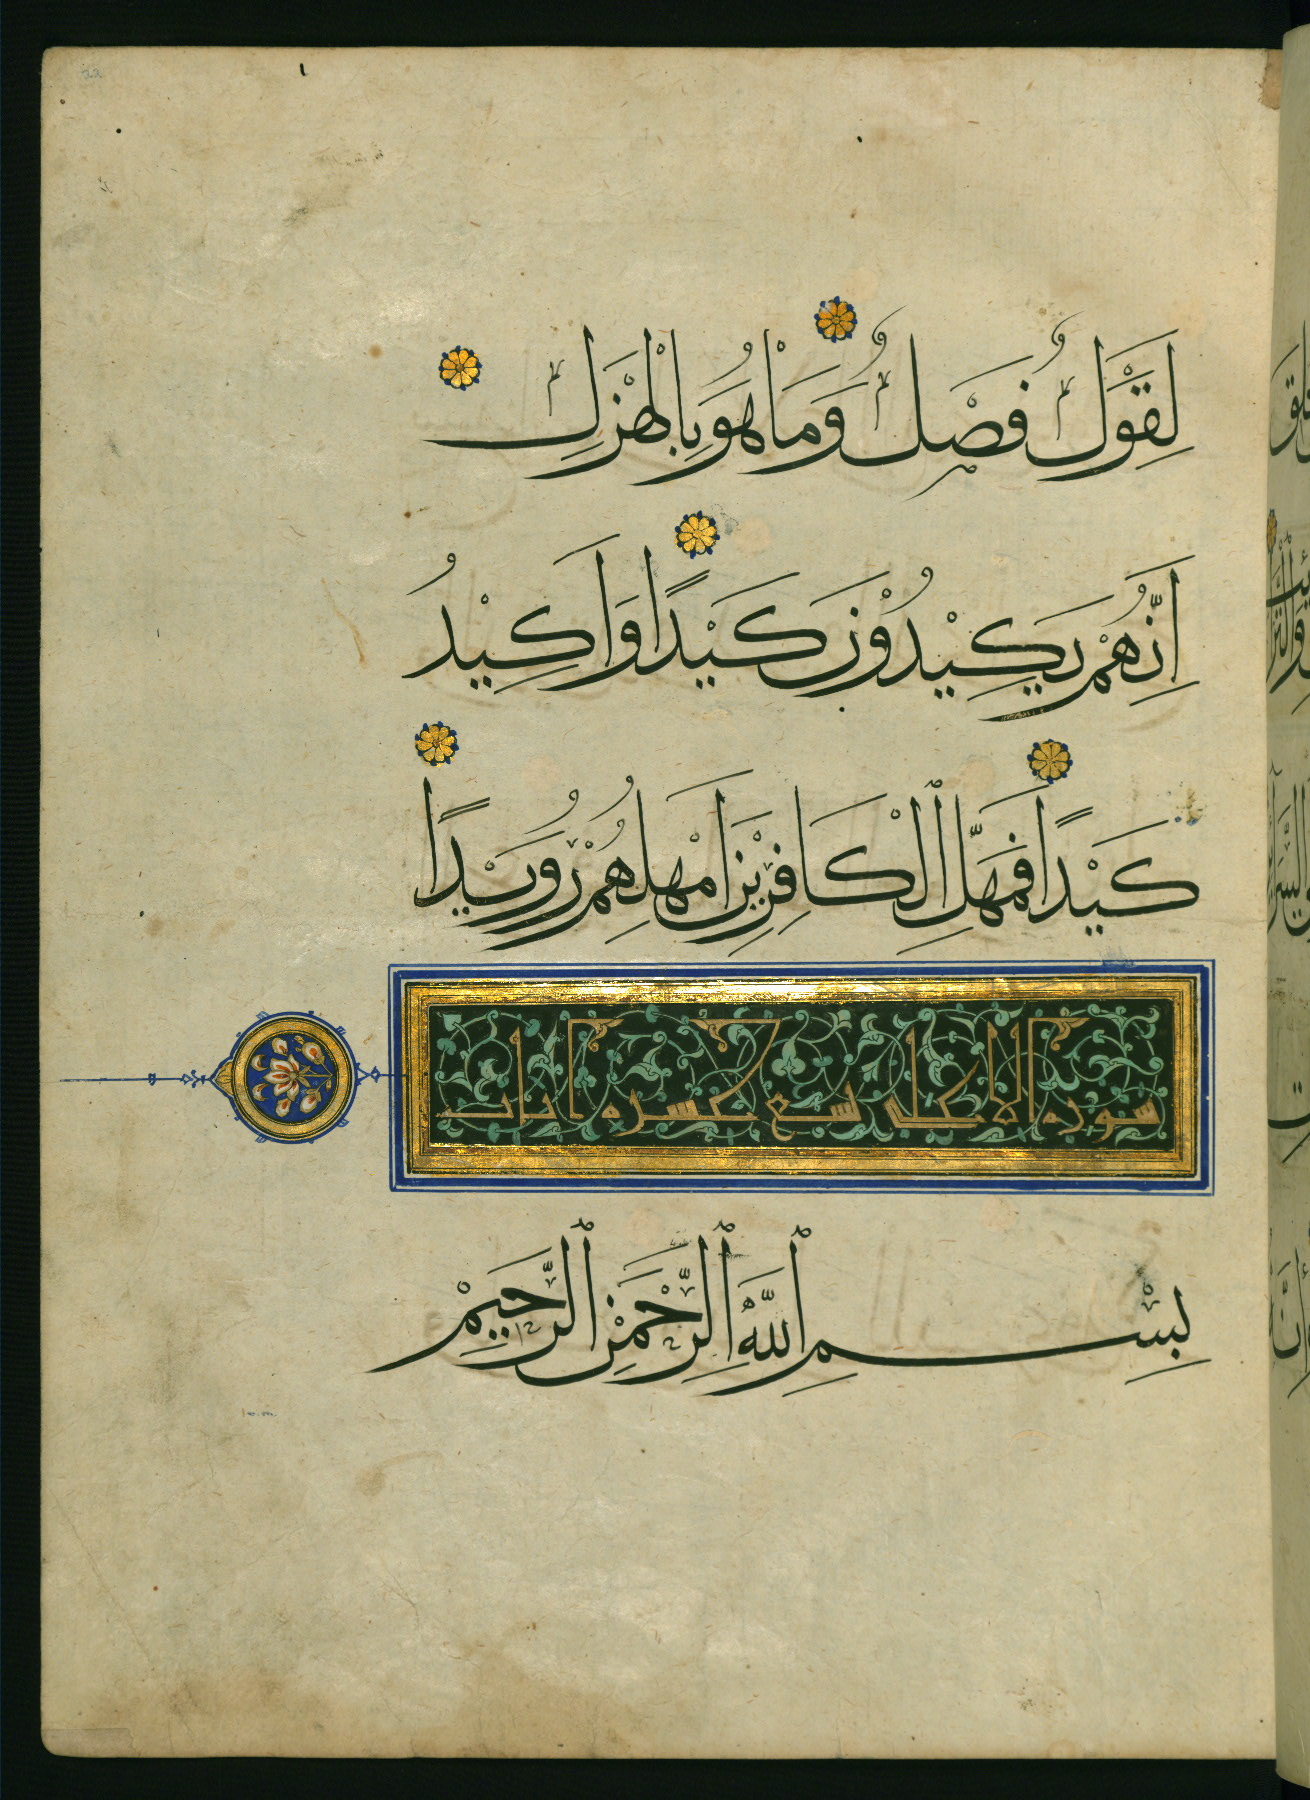 لَقَوْلٌ فَصْلٌ وَمَا هُوَ بِالْهَزْلِ
اِنَّهُمْ يَكِيْدُوْنَ كَيْدًا وَاَكِيْدُ
كَيْدًا فَمَهِّلِ الْكَافِرِيْنَ اَمْهِلْهُمْ رُوَيْدًا
سورة الاعلى تسع عشرة ايات
بِسْمِ اللَّهِ الرَّحْمَنِ الرَّحِيمِ